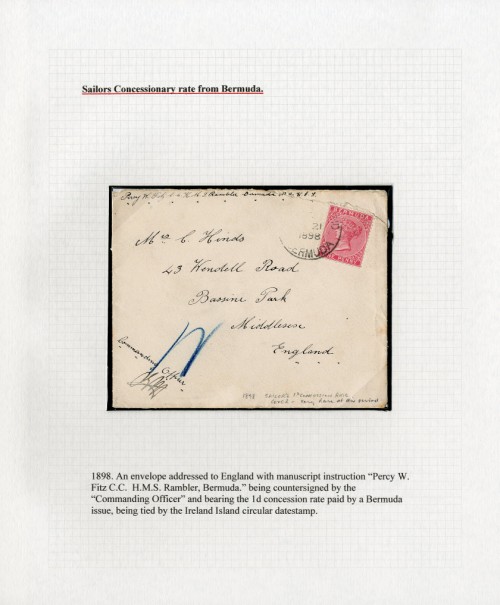 Sailors Concessionary rate from Bermuda.
Percy W. H.M.S Rambler Bermuda
BERMUDA
21
1898
BERMUDA
PENNY
Mrs C. Hinds
43 Wendell Road
Bassine Park
Middlesex
England
Commanding
Officer
1898 SAILOR'S 1d CONCESSION RATE
COVER - very rare at this period
1898. An envelope addressed to England with manuscript instruction “Percy W.
Fitz C.C. H.M.S. Rambler, Bermuda.” being countersigned by the
“Commanding Officer” and bearing the 1d concession rate paid by a Bermuda
issue, being tied by the Ireland Island circular datestamp.